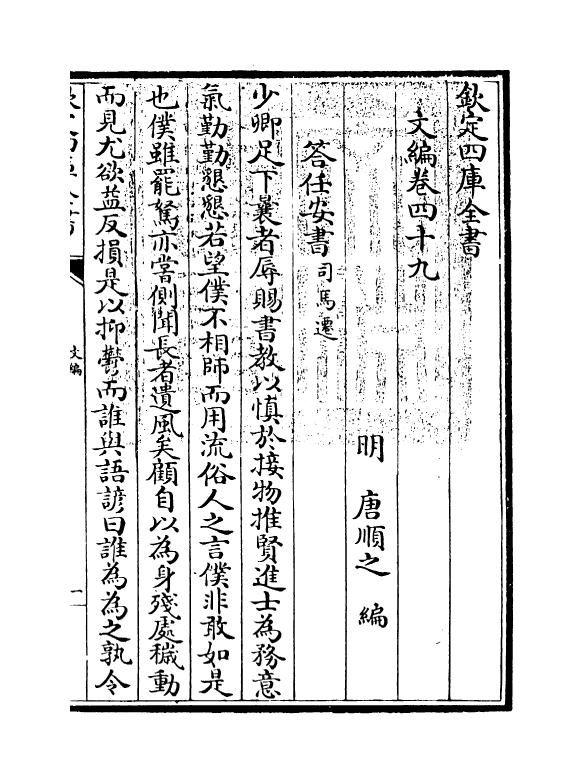 欽定四庫全書
文編卷四十九
明　唐順之　編
答任安書司馬遷
少卿足下曩者辱賜書教以慎於接物推賢進士為務意
氣勤勤懇懇若望僕不相師而用流俗人之言僕非敢如是
也僕雖罷駑亦嘗側聞長者遺風矣顧自以為身殘處穢動
而見尤欲益反損是以抑鬱而誰與語諺曰誰為為之孰令
文編